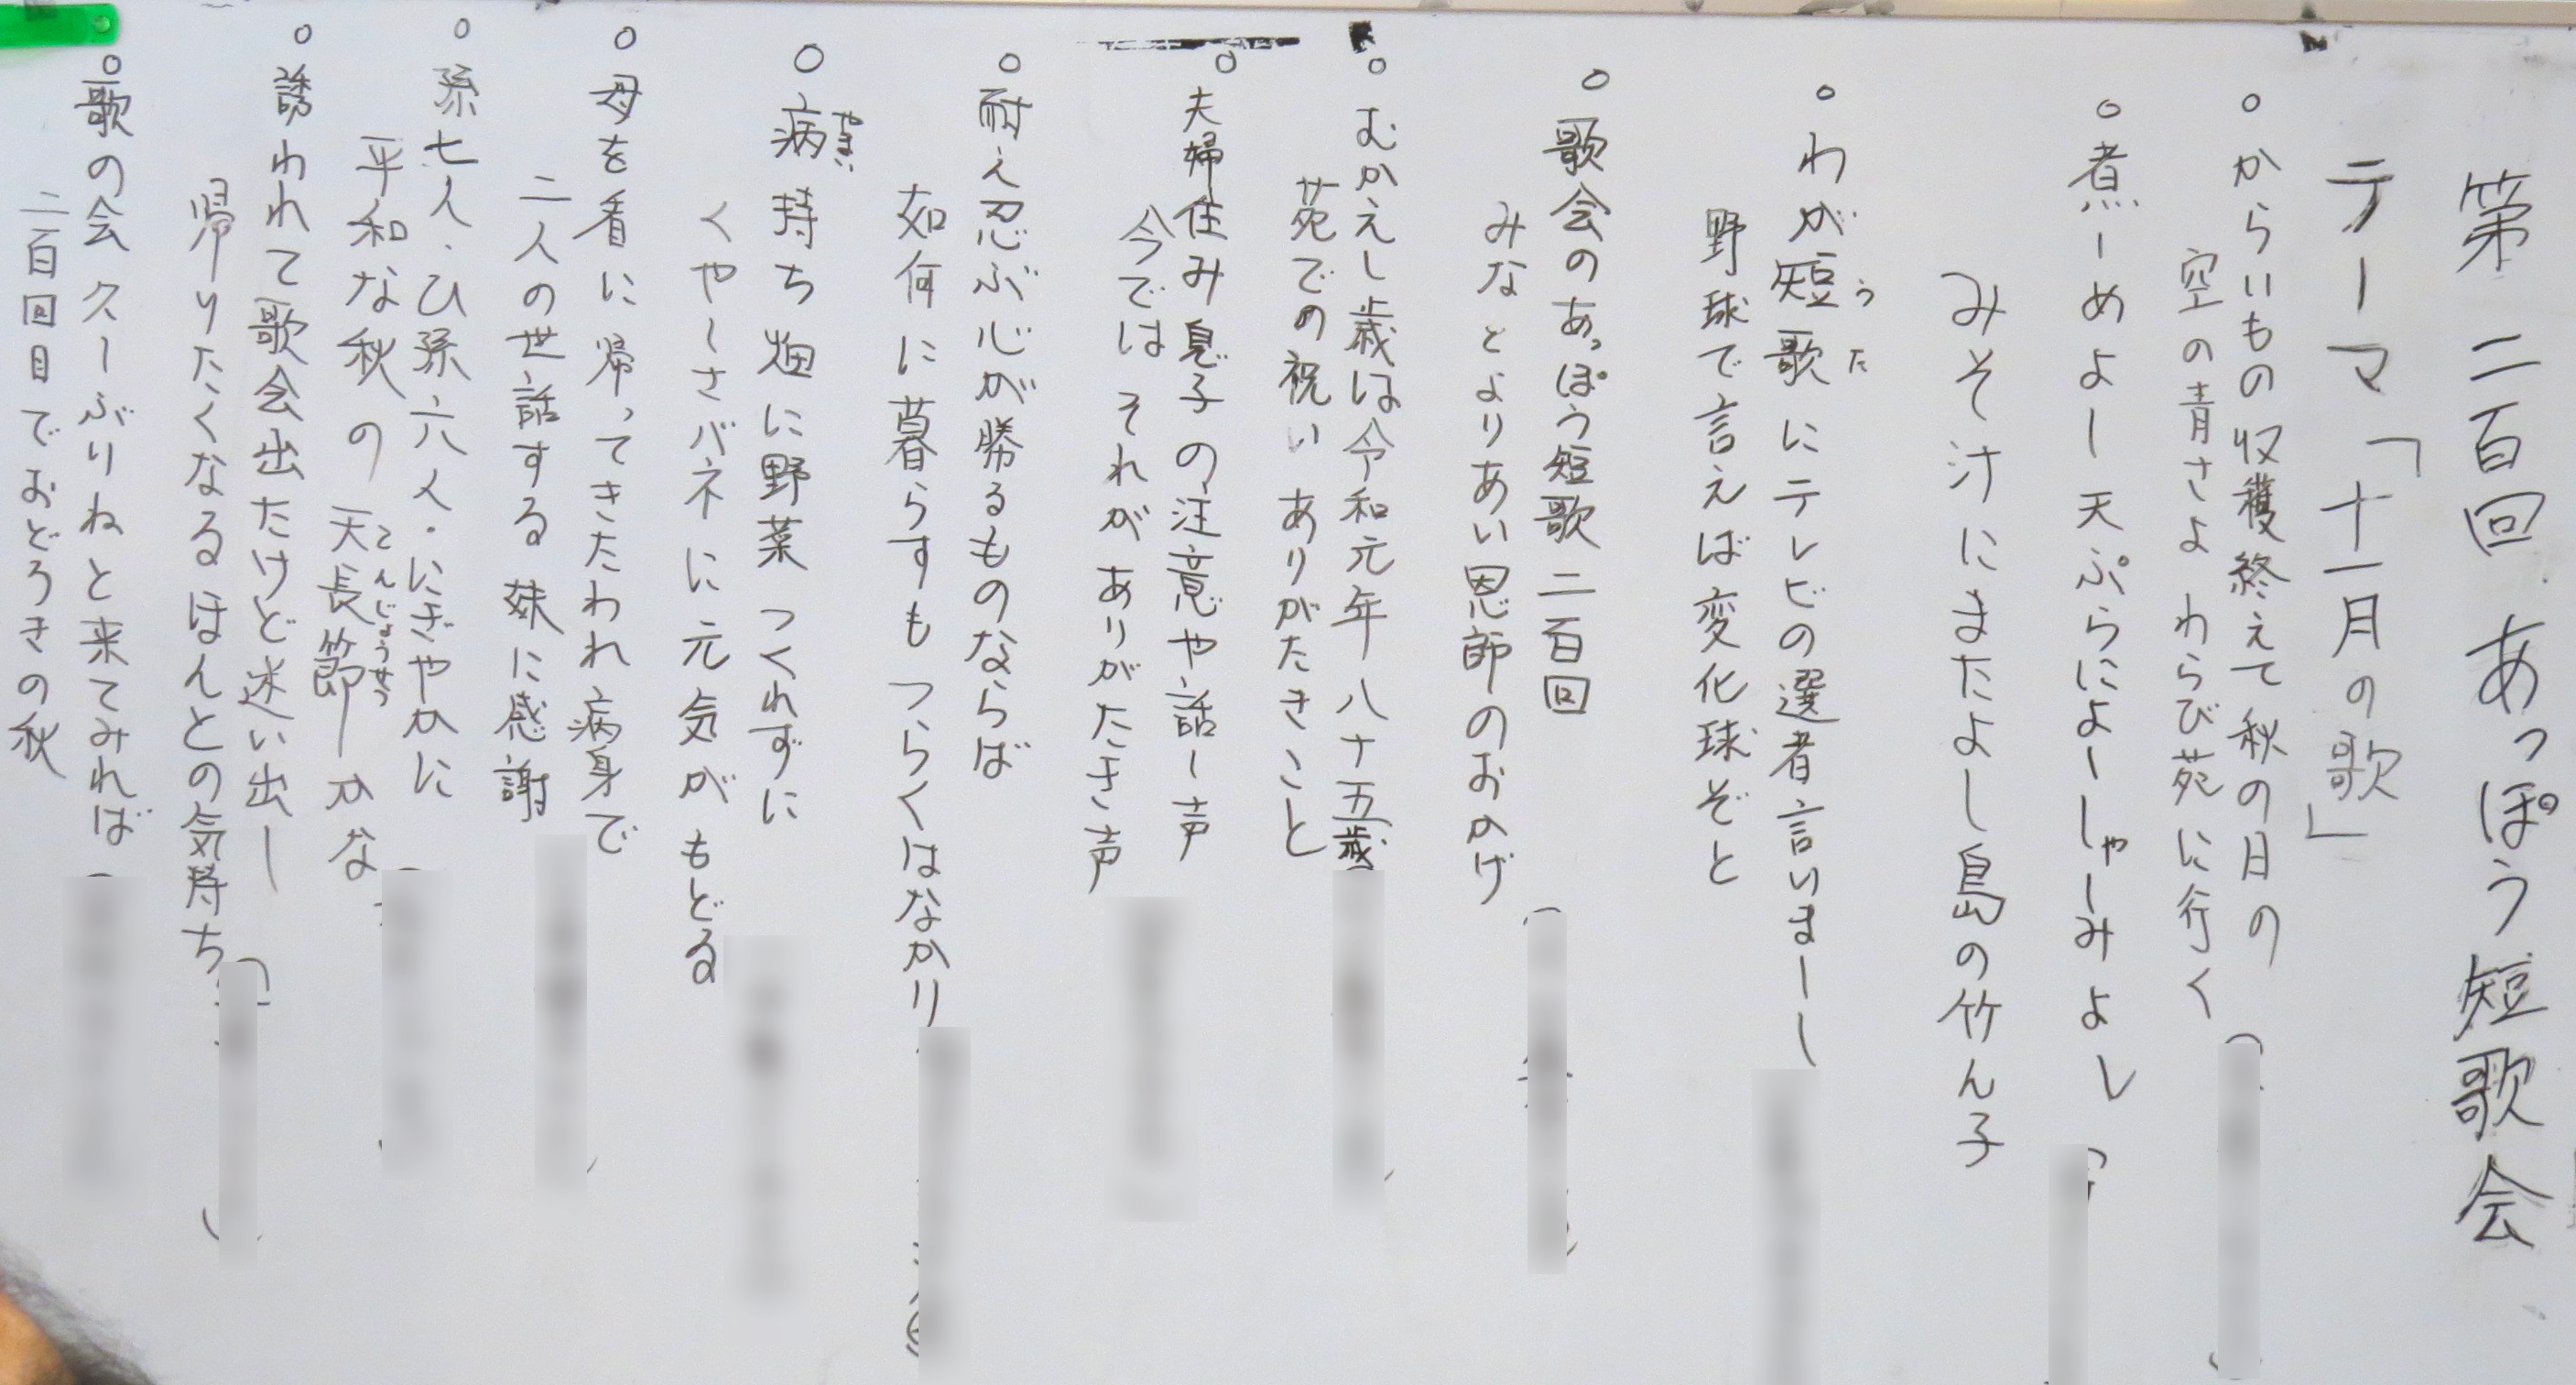 第二百回 あっぽう短歌会
テーマ「十一月の歌」
○からいもの収穫終えて秋の日の
空の青さよ わらび苑に行く
○煮ーめよー天ぷらによーしゃーみよし
みそ汁にまたよし島の竹ん子
○わが短歌にテレビの選者言いまーし
うた
野球で言えば変化球ぞと
○歌会のあっぽう短歌 二百回
みなとよりあい恩師のおかげ
○むかえし歳は令和元年八十五歳
苑での祝い ありがたきこと
○夫婦住み息子の注意や話し声
今では それが ありがたき声
○耐え忍ぶ心が勝るものならば
如何に暮らすも つらくはなかり
○病持ち畑に野菜 つくれずに
やまい
くやしさバネに元気がもどる
○母を看に帰ってきたわれ病身で
二人の世話する 妹に感謝
○孫七人・ひ孫六人・にぎやかに
平和な秋の 天長節ーかな
てんじょうせつ
○誘われて歌会出たけど迷い出し
帰りたくなるほんとの気持ち
○歌の会 久ーぶりねと来てみれば
二百回目でおどろきの秋